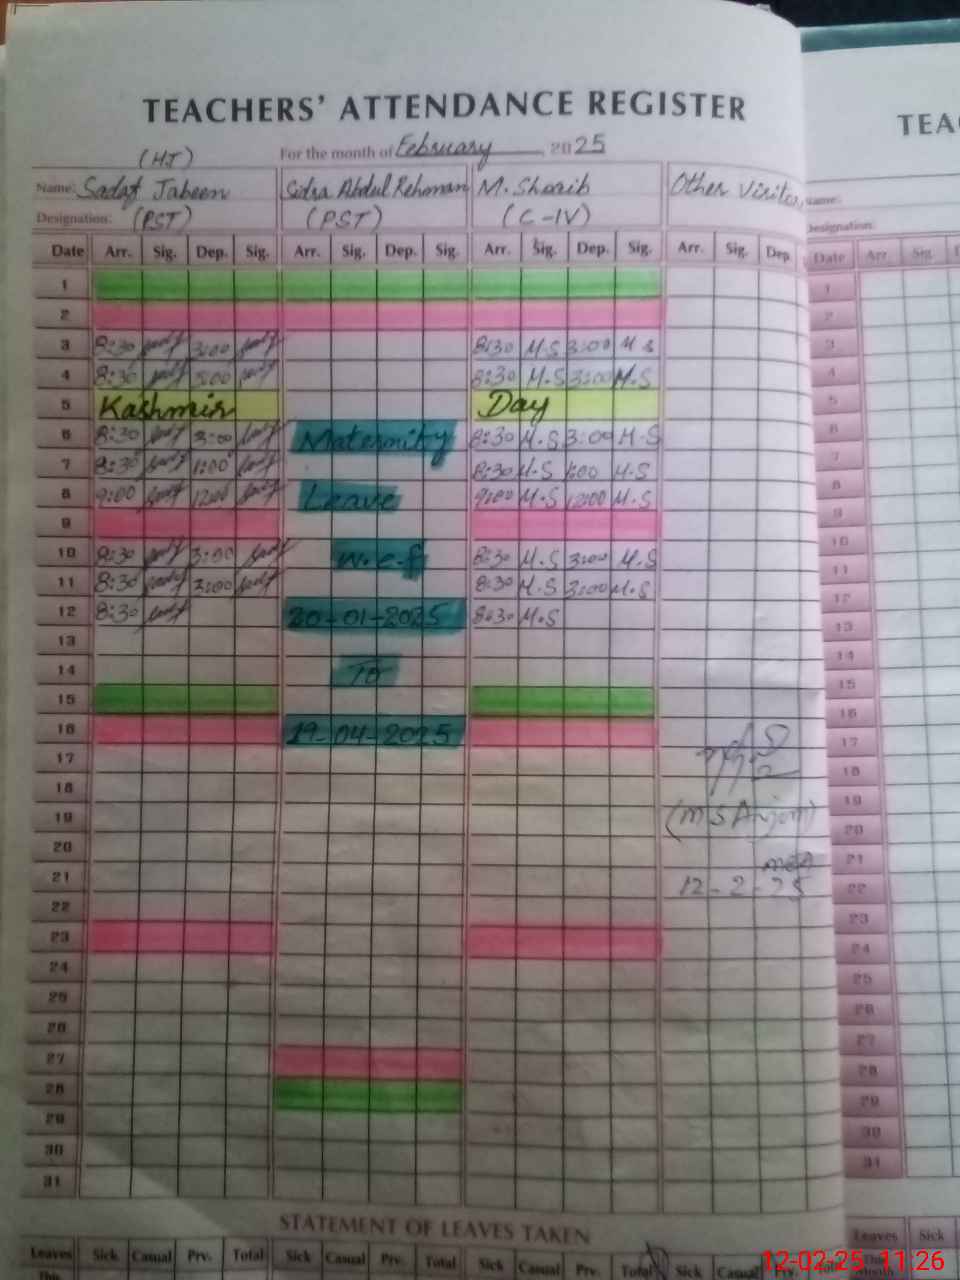 TEACHERS' ATTENDANCE REGISTER
(HT) For the month of February 2025
Name: Sadaf Jabeen Sidra Abdul Rehman M. Shoaib Other Visitors
Designation: (PST) (PST) (C-IV)
Date Arr. Sig. Dep. Sig. Arr. Sig. Dep. Sig. Arr. Sig. Dep. Sig. Arr. Sig. Dep.
1
2
3 8:30 3:00 8:30 M.S 3:00 M.S
4 8:30 3:00 8:30 M.S 3:00 M.S
5 Kashmir Day
6 8:30 3:00 Maternity 8:30 M.S 3:00 M.S
7 8:30 1:00 8:30 M.S 1:00 M.S
8 9:00 12:00 Leave 9:00 M.S 12:00 M.S
9
10 8:30 3:00 w.e.f 8:30 M.S 3:00 M.S
11 8:30 3:00 8:30 M.S 3:00 M.S
12 8:30 20-01-2025 8:30 M.S
13
14 To
15
16 19-04-2025
17
18
19 (M S Anjom)
20
21 12-2-25
22
23
24
25
26
27
28
29
30
31
STATEMENT OF LEAVES TAKEN
Leaves Sick Casual Prv. Total Sick Casual Prv. Total Sick Casual Prv. Total Sick Casual Prv.
This
TEA
Name:
Designation:
Date Arr. Sig.
1
2
3
4
5
6
7
8
9
10
11
12
13
14
15
16
17
18
19
20
21
22
23
24
25
26
27
28
29
30
31
Leaves Sick
This
12-02-25 11:26